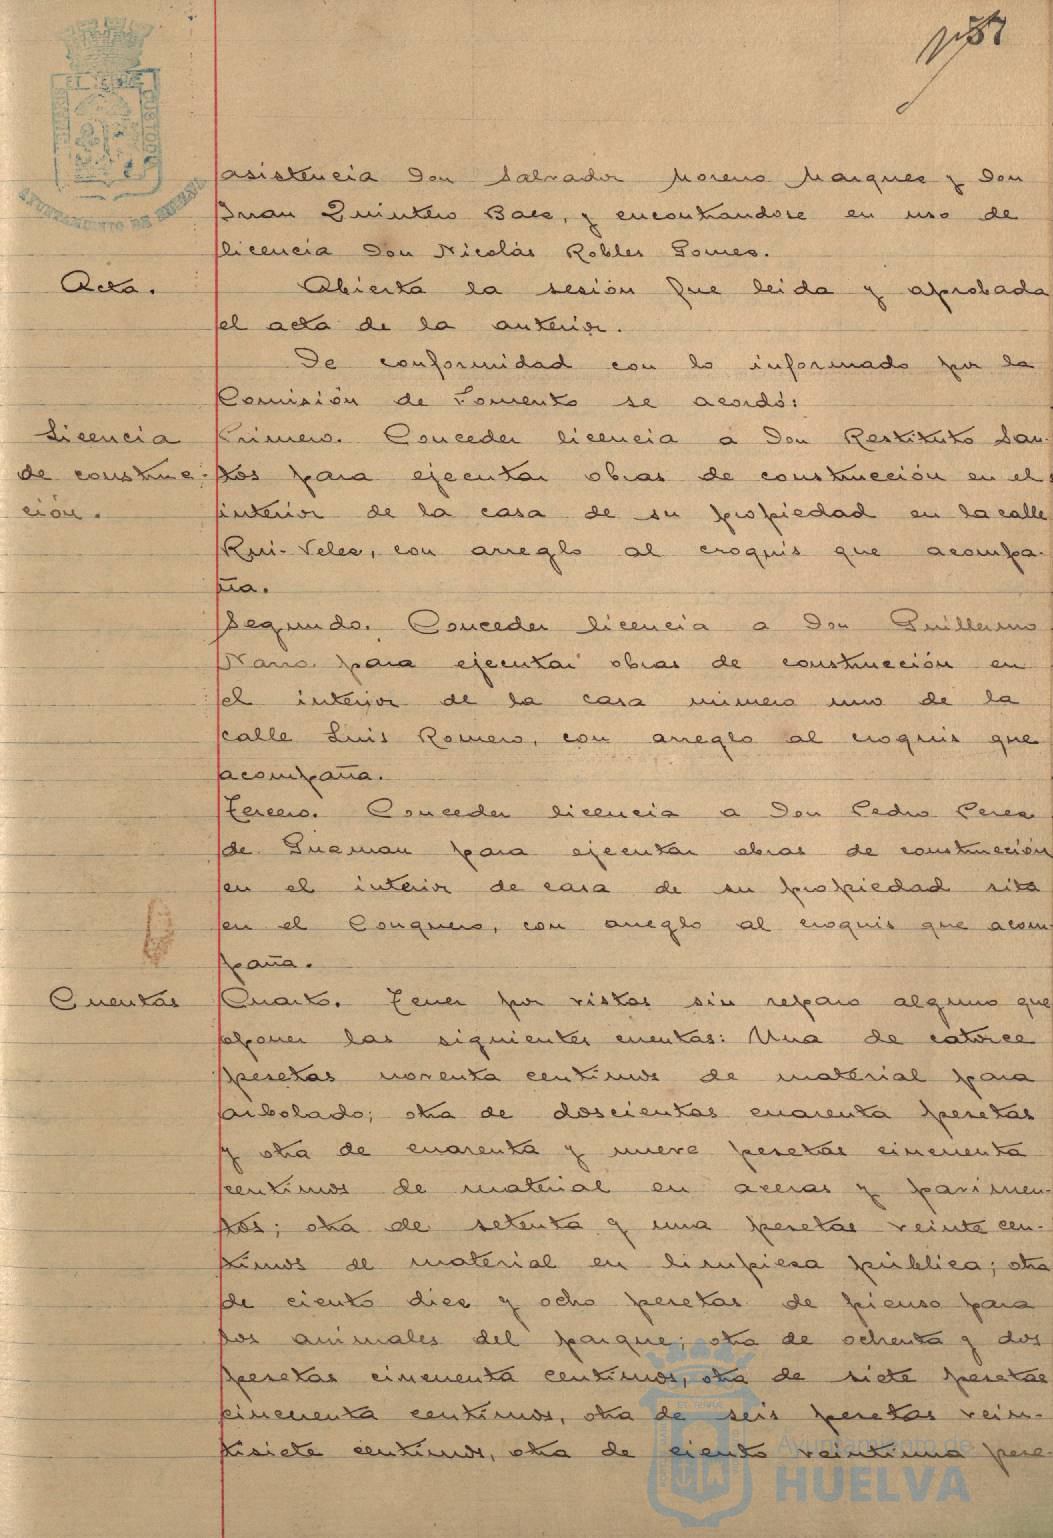 asistencia Don Salvador Moreno Marquez y Don
Juan Quintero Baez, y encontrandose en uso de
licencia Don Nicolás Robles Gomez.
Acta.
Abierta la sesión fue leida y aprobada
el acta de la anterior.
De conformidad con lo informado por la
Comisión de Fomento se acordó:
Licencia
de construc-
ción.
Primero. Conceder licencia a Don Restituto San-
tos para ejecutar obras de construcción en el
interior de la casa de su propiedad en la calle
Rui-Velez, con arreglo al croquis que acompa-
ña.
Segundo. Conceder licencia a Don Guillermo
para ejecutar obras de construcción en
el interior de la casa número uno de la
calle Luis Romero, con arreglo al croquis que
acompaña.
Tercero. Conceder licencia a Don Pedro Perez
de Guzman para ejecutar obras de construcción
en el interior de casa de su propiedad sita
en el Conquero, con arreglo al croquis que acom-
paña.
Cuentas
Cuarto. Tener por vistas sin reparo alguno que
oponer las siguientes cuentas: Una de catorce
pesetas noventa centimos de material para
arbolado; otra de doscientas cuarenta pesetas
y otra de cuarenta y nueve pesetas cincuenta
centimos de material en aceras y pavimen-
tos; otra de setenta y una pesetas veinte cen-
timos de material en limpieza pública; otra
de ciento diez y ocho pesetas de pienso para
los animales del parque; otra de ochenta y dos
pesetas cincuenta centimos, otra de siete pesetas
cincuenta centimos, otra de seis pesetas vein-
tisiete centimos, otra de ciento veintiuna pese-
AYUNTAMIENTO DE HUELVA
Ayuntamiento de
HUELVA